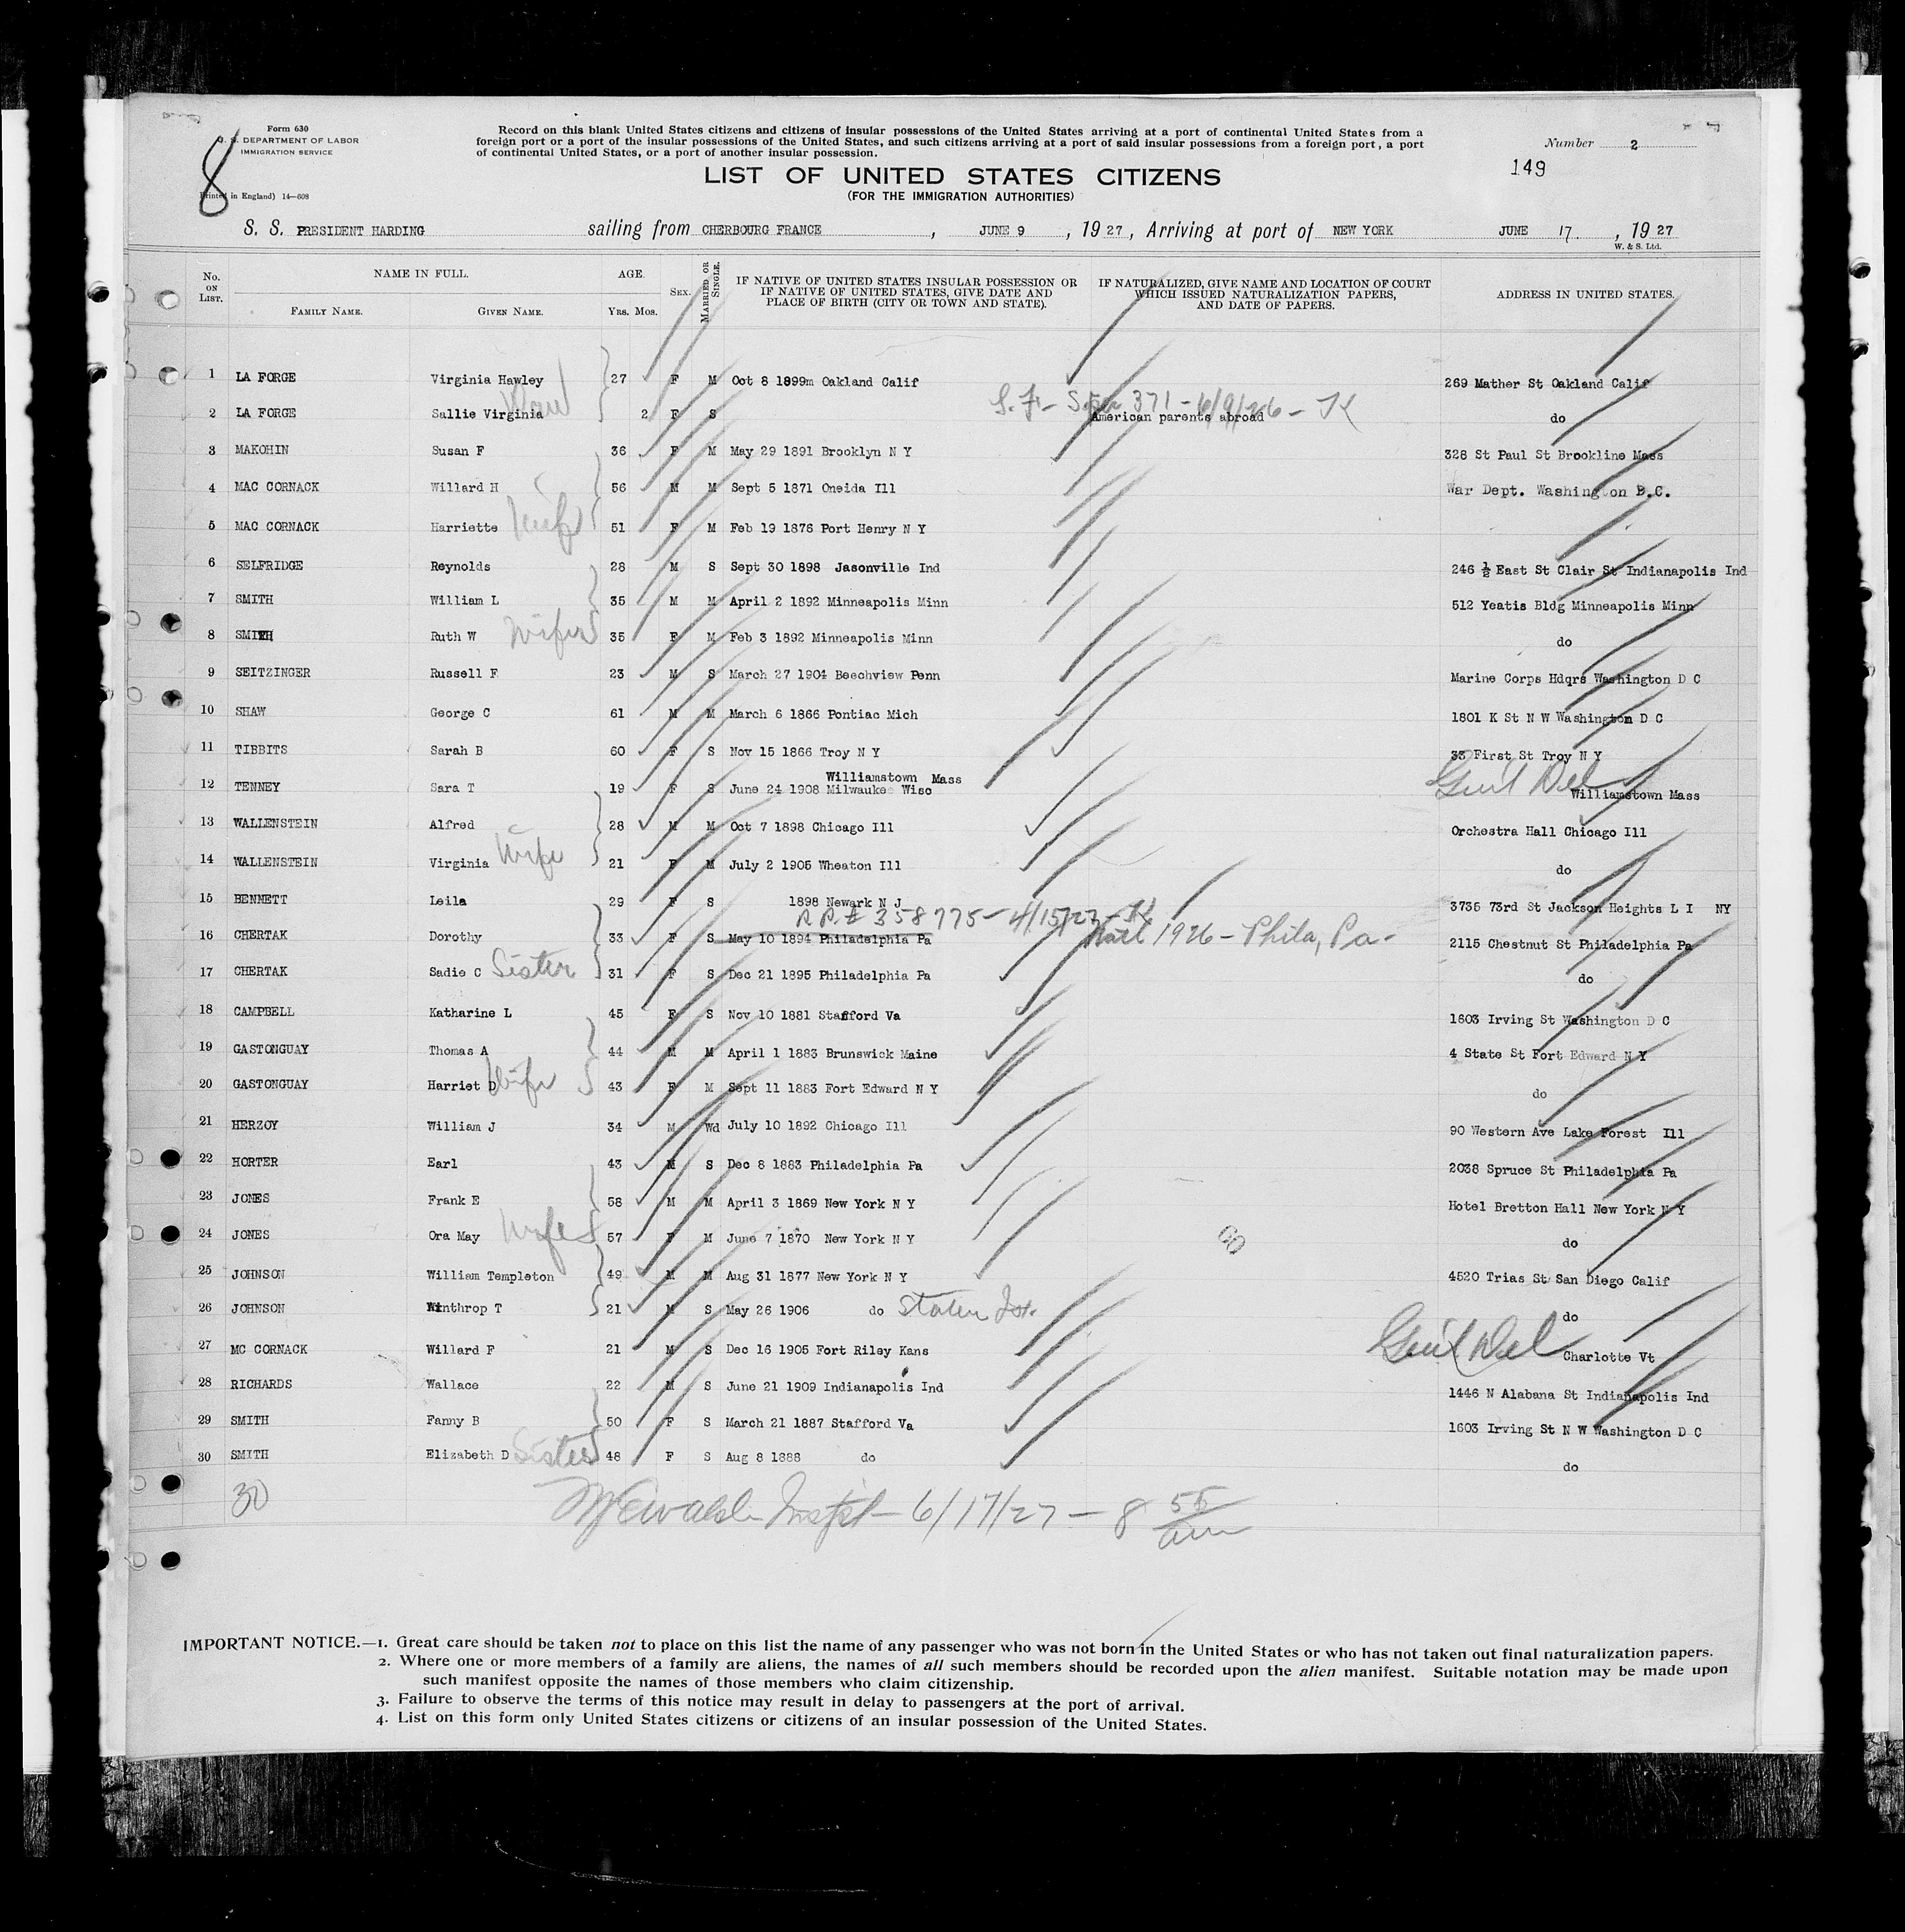 Form 630
U. S. DEPARTMENT OF LABOR
IMMIGRATION SERVICE
(Printed in England) 14—608
8
Record on this blank United States citizens and citizens of insular possessions of the United States arriving at a port of continental United States from a
foreign port or a port of the insular possessions of the United States, and such citizens arriving at a port of said insular possessions from a foreign port, a port
of continental United States, or a port of another insular possession.
Number 2
149
LIST OF UNITED STATES CITIZENS
(FOR THE IMMIGRATION AUTHORITIES)
S. S. PRESIDENT HARDING sailing from CHERBOURG FRANCE, JUNE 9, 1927, Arriving at port of NEW YORK JUNE 17, 1927
W. & S. Ltd.
No. ON LIST. NAME IN FULL. FAMILY NAME. GIVEN NAME. AGE. YRS. MOS. SEX. MARRIED OR SINGLE. IF NATIVE OF UNITED STATES INSULAR POSSESSION OR IF NATIVE OF UNITED STATES, GIVE DATE AND PLACE OF BIRTH (CITY OR TOWN AND STATE). IF NATURALIZED, GIVE NAME AND LOCATION OF COURT WHICH ISSUED NATURALIZATION PAPERS, AND DATE OF PAPERS. ADDRESS IN UNITED STATES.
1 LA FORGE Virginia Hawley 27 F M Oct 8 1899m Oakland Calif 269 Mather St Oakland Calif
2 LA FORGE Sallie Virginia 2 F S 371 - 6/9/26 - American parents abroad do
3 MAKOHIN Susan F 36 F M May 29 1891 Brooklyn N Y 328 St Paul St Brookline Mass
4 MAC CORNACK Willard H 56 M M Sept 5 1871 Oneida Ill War Dept. Washington D.C.
5 MAC CORNACK Harriette Wife 51 F M Feb 19 1876 Port Henry N Y
6 SELFRIDGE Reynolds 28 M S Sept 30 1898 Jasonville Ind 246 ½ East St Clair St Indianapolis Ind
7 SMITH William L 35 M M April 2 1892 Minneapolis Minn 512 Yeatis Bldg Minneapolis Minn
8 SMITH Ruth W Wife 35 F M Feb 3 1892 Minneapolis Minn do
9 SEITZINGER Russell F 23 M S March 27 1904 Beechview Penn Marine Corps Hdqrs Washington D C
10 SHAW George C 61 M M March 6 1866 Pontiac Mich 1801 K St N W Washington D C
11 TIBBITS Sarah B 60 F S Nov 15 1866 Troy N Y 33 First St Troy N Y
Williamstown Mass
12 TENNEY Sara T 19 F S June 24 1908 Milwaukee Wisc Genl Del Williamstown Mass
13 WALLENSTEIN Alfred 28 M M Oct 7 1898 Chicago Ill Orchestra Hall Chicago Ill
14 WALLENSTEIN Virginia Wife 21 F M July 2 1905 Wheaton Ill do
15 BENNETT Leila 29 F S 1898 Newark N J 3735 73rd St Jackson Heights L I NY
358775 - 4/15/27 -
16 CHERTAK Dorothy 33 F S May 10 1894 Philadelphia Pa Natl 1926 - Phila, Pa - 2115 Chestnut St Philadelphia Pa
17 CHERTAK Sadie C Sister 31 F S Dec 21 1895 Philadelphia Pa do
18 CAMPBELL Katharine L 45 F S Nov 10 1881 Stafford Va 1603 Irving St Washington D C
19 GASTONGUAY Thomas A 44 M M April 1 1883 Brunswick Maine 4 State St Fort Edward N Y
20 GASTONGUAY Harriet D Wife 43 F M Sept 11 1883 Fort Edward N Y do
21 HERZOY William J 34 M Wd July 10 1892 Chicago Ill 90 Western Ave Lake Forest Ill
22 HORTER Earl 43 M S Dec 8 1883 Philadelphia Pa 2038 Spruce St Philadelphia Pa
23 JONES Frank E 58 M M April 3 1869 New York N Y Hotel Bretton Hall New York N Y
24 JONES Ora May Wife 57 F M June 7 1870 New York N Y do
25 JOHNSON William Templeton 49 M M Aug 31 1877 New York N Y 4520 Trias St San Diego Calif
26 JOHNSON Winthrop T 21 M S May 26 1906 do Staten Isl. do
27 MC CORNACK Willard F 21 M S Dec 16 1905 Fort Riley Kans Genl Del Charlotte Vt
28 RICHARDS Wallace 22 M S June 21 1909 Indianapolis Ind 1446 N Alabana St Indianapolis Ind
29 SMITH Fanny B 50 F S March 21 1887 Stafford Va 1603 Irving St N W Washington D C
30 SMITH Elizabeth D Sister 48 F S Aug 8 1888 do do
30
Inspt - 6/17/27 - 8 55 am
IMPORTANT NOTICE.—1. Great care should be taken not to place on this list the name of any passenger who was not born in the United States or who has not taken out final naturalization papers.
2. Where one or more members of a family are aliens, the names of all such members should be recorded upon the alien manifest. Suitable notation may be made upon
such manifest opposite the names of those members who claim citizenship.
3. Failure to observe the terms of this notice may result in delay to passengers at the port of arrival.
4. List on this form only United States citizens or citizens of an insular possession of the United States.